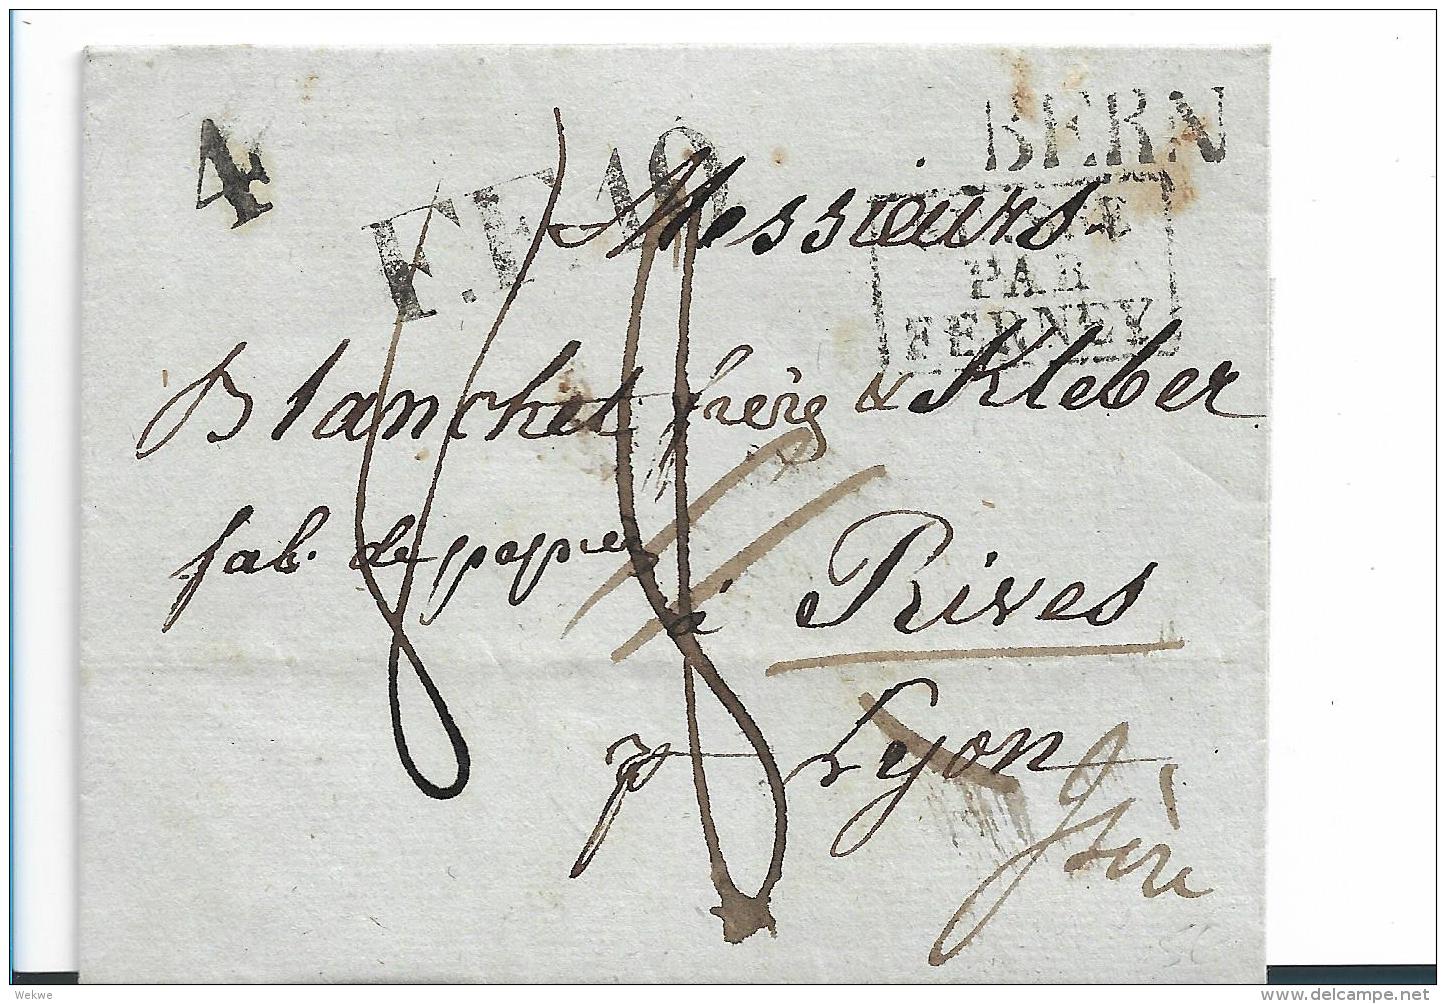 4
BERN
F.F. 10
SUISSE
PAR
FERNEY
Messieurs
Blanchet frères & Kleber
fab. de papier
à Rives
p Lyon
Isère
Wekwe
delcampe.net